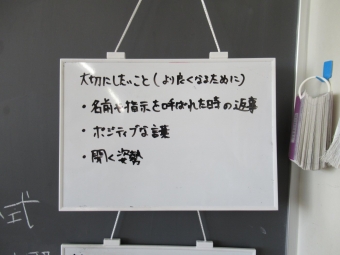 大切にしたいこと(より良くなるために)
・名前や指示を呼ばれた時の返事
・ポジティブな言葉
・聞く姿勢
式